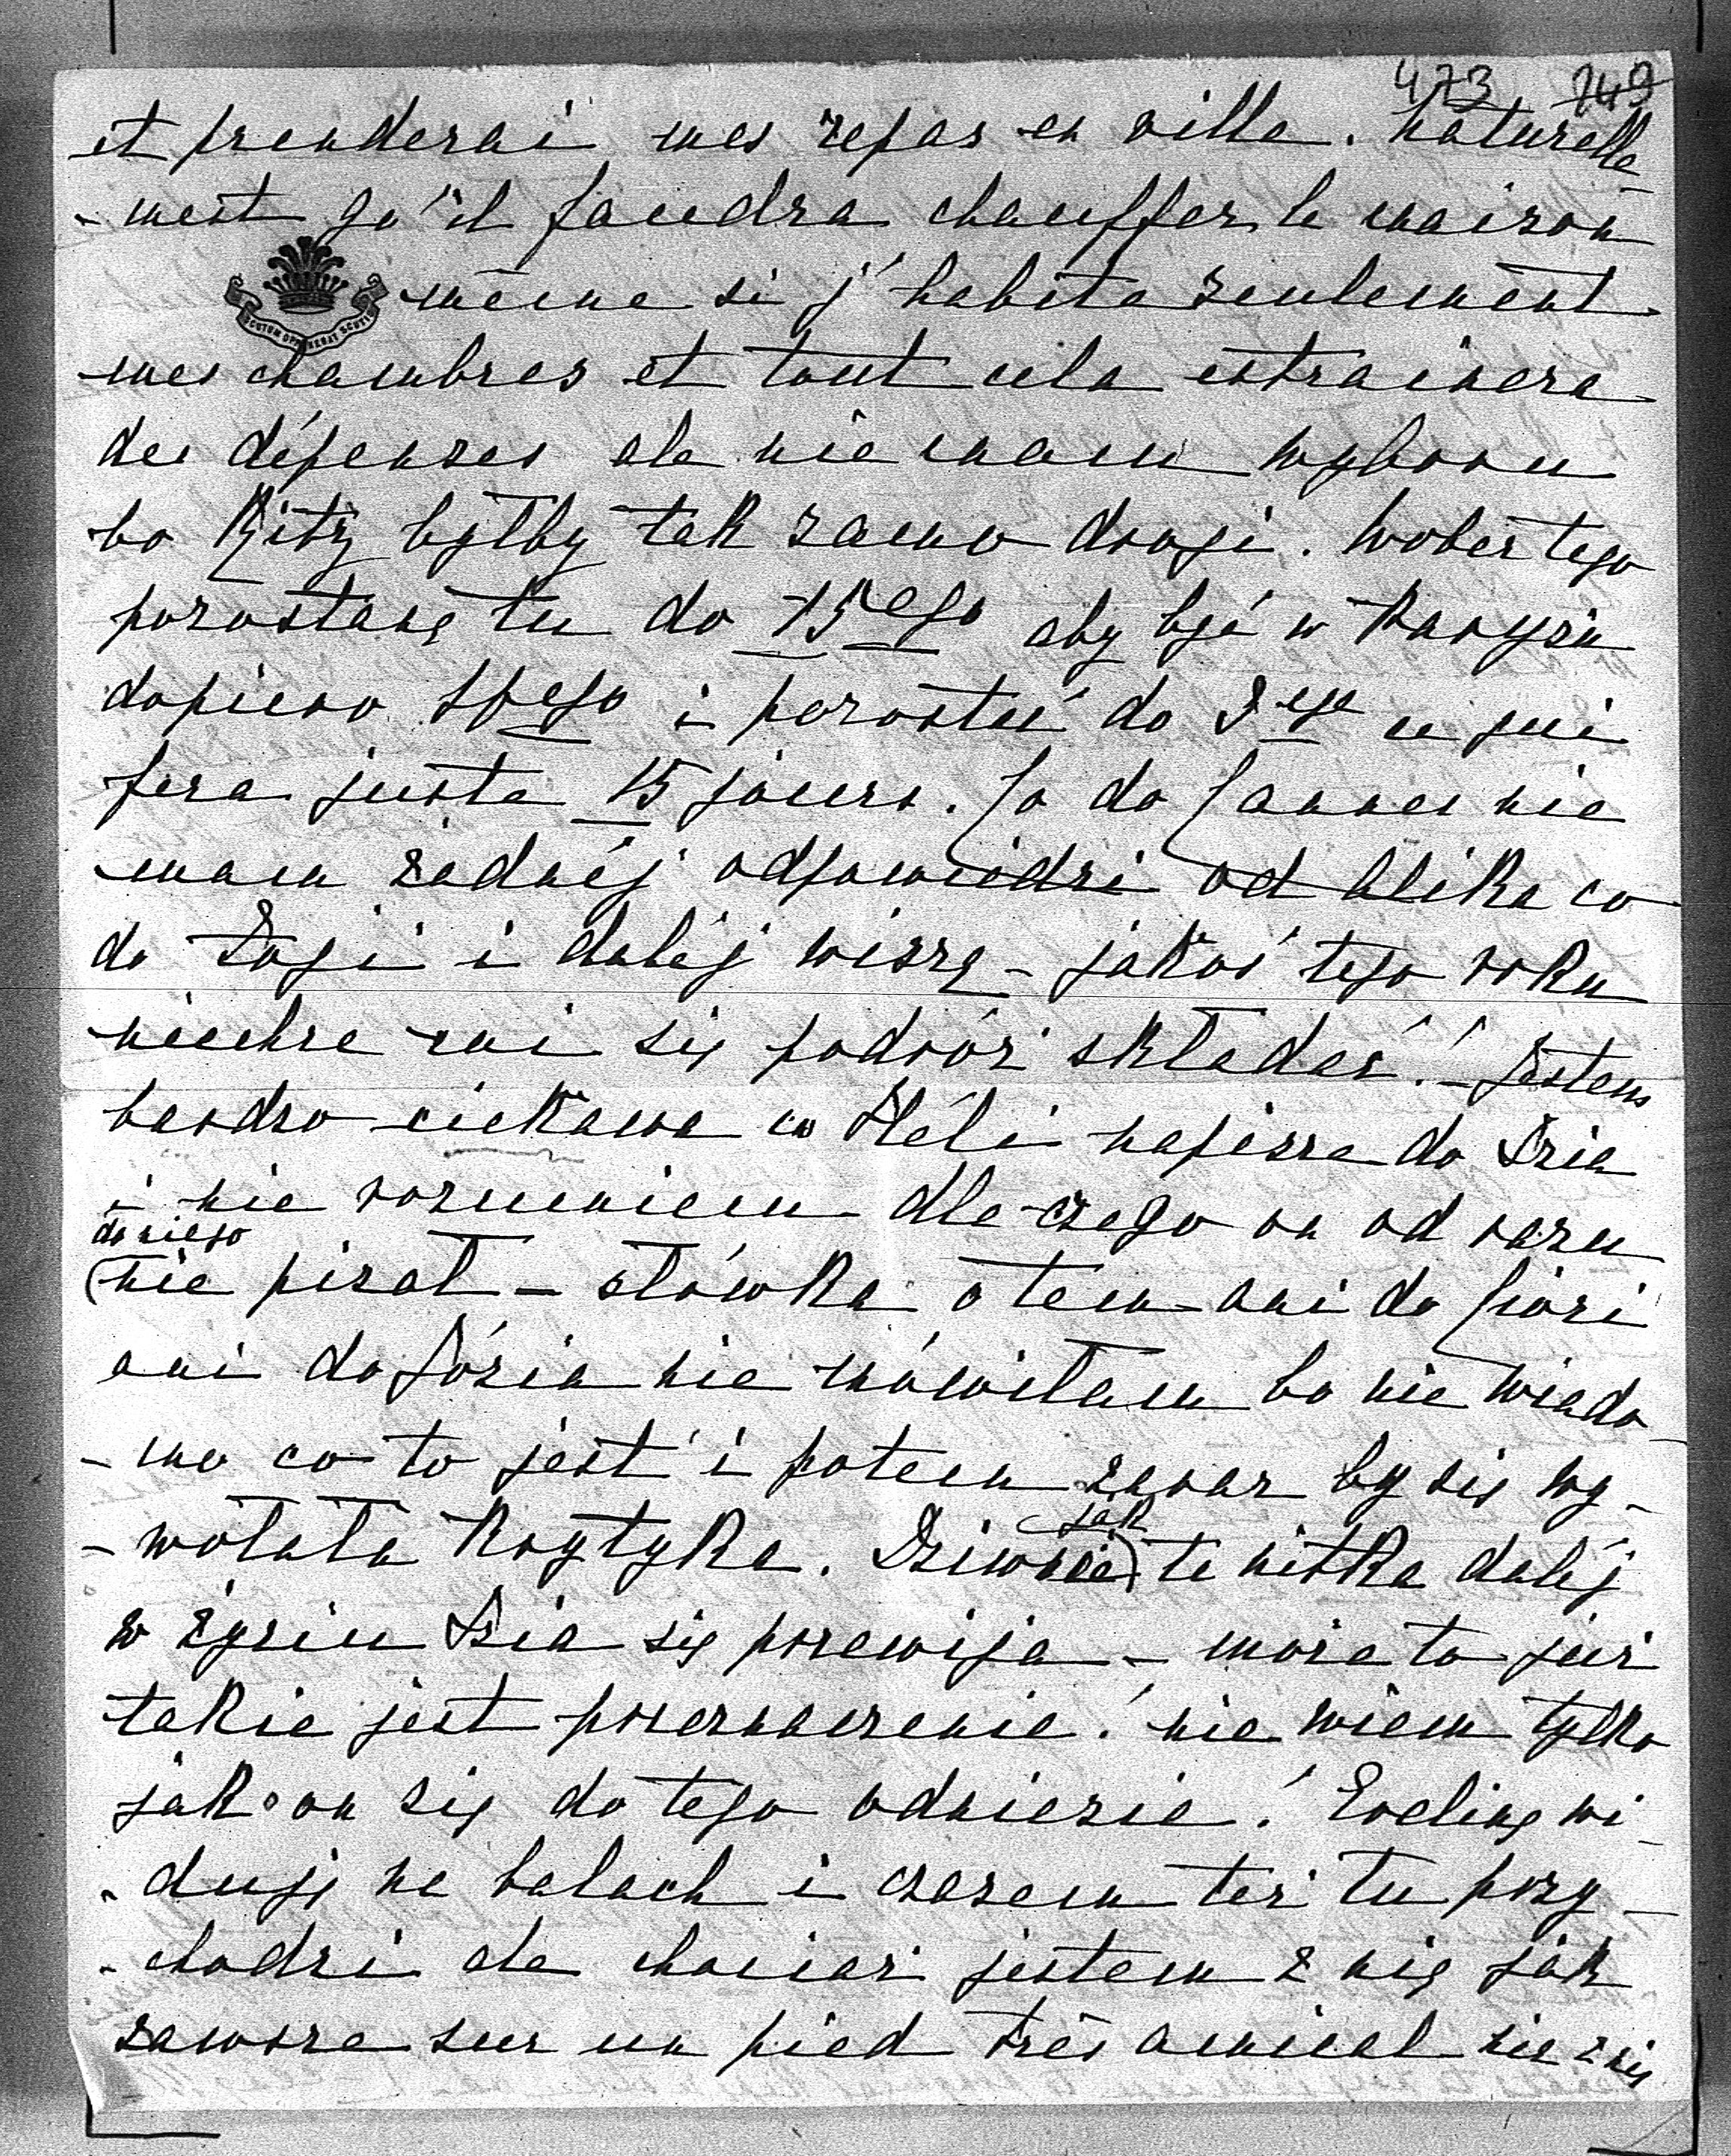 473 749
et prenderai mes repas en ville. Naturelle-
-ment qu'il faudra chauffer la maison
même si j'habite seulement
mes chambres et tout cela entrainera
des dépenses ale nie mam wyboru
bo Ritz byłby tak samo drogi. Wobec tego
pozostanę tu do 15ego aby być w Paryżu
dopiero ego i pozostać do 2ego ce qui
fera juste 15 jours. Co do Cannes nie
mam żadnéj odpowiedzi od Alika co
do Łogi i daléj wiszę - jakoś tego roku
niechce mi się podróż składać! - Jestem
bardzo ciekawa co Héli napisze do Dzia
i nie rozumiem dla-czego on od razu
do niego
(nie pisał - słówka o tem ani do Ciozi
ani do Józia nie mówiłam bo nie wiado-
-mo co to jest i potem zaraz by się wy-
-wołała krytyka. Dziwnie
jak
) ta nitka daléj
w życiu Dzia się przewija - może to już
takie jest przeznaczenie! nie wiem tylko
jak on się do tego odniesie! Evelinę wi-
-duję na balach i czasem też tu przy-
-chodzi ale chociaż jestem z nią jak
zawsze sur un pied très amical nic z nią